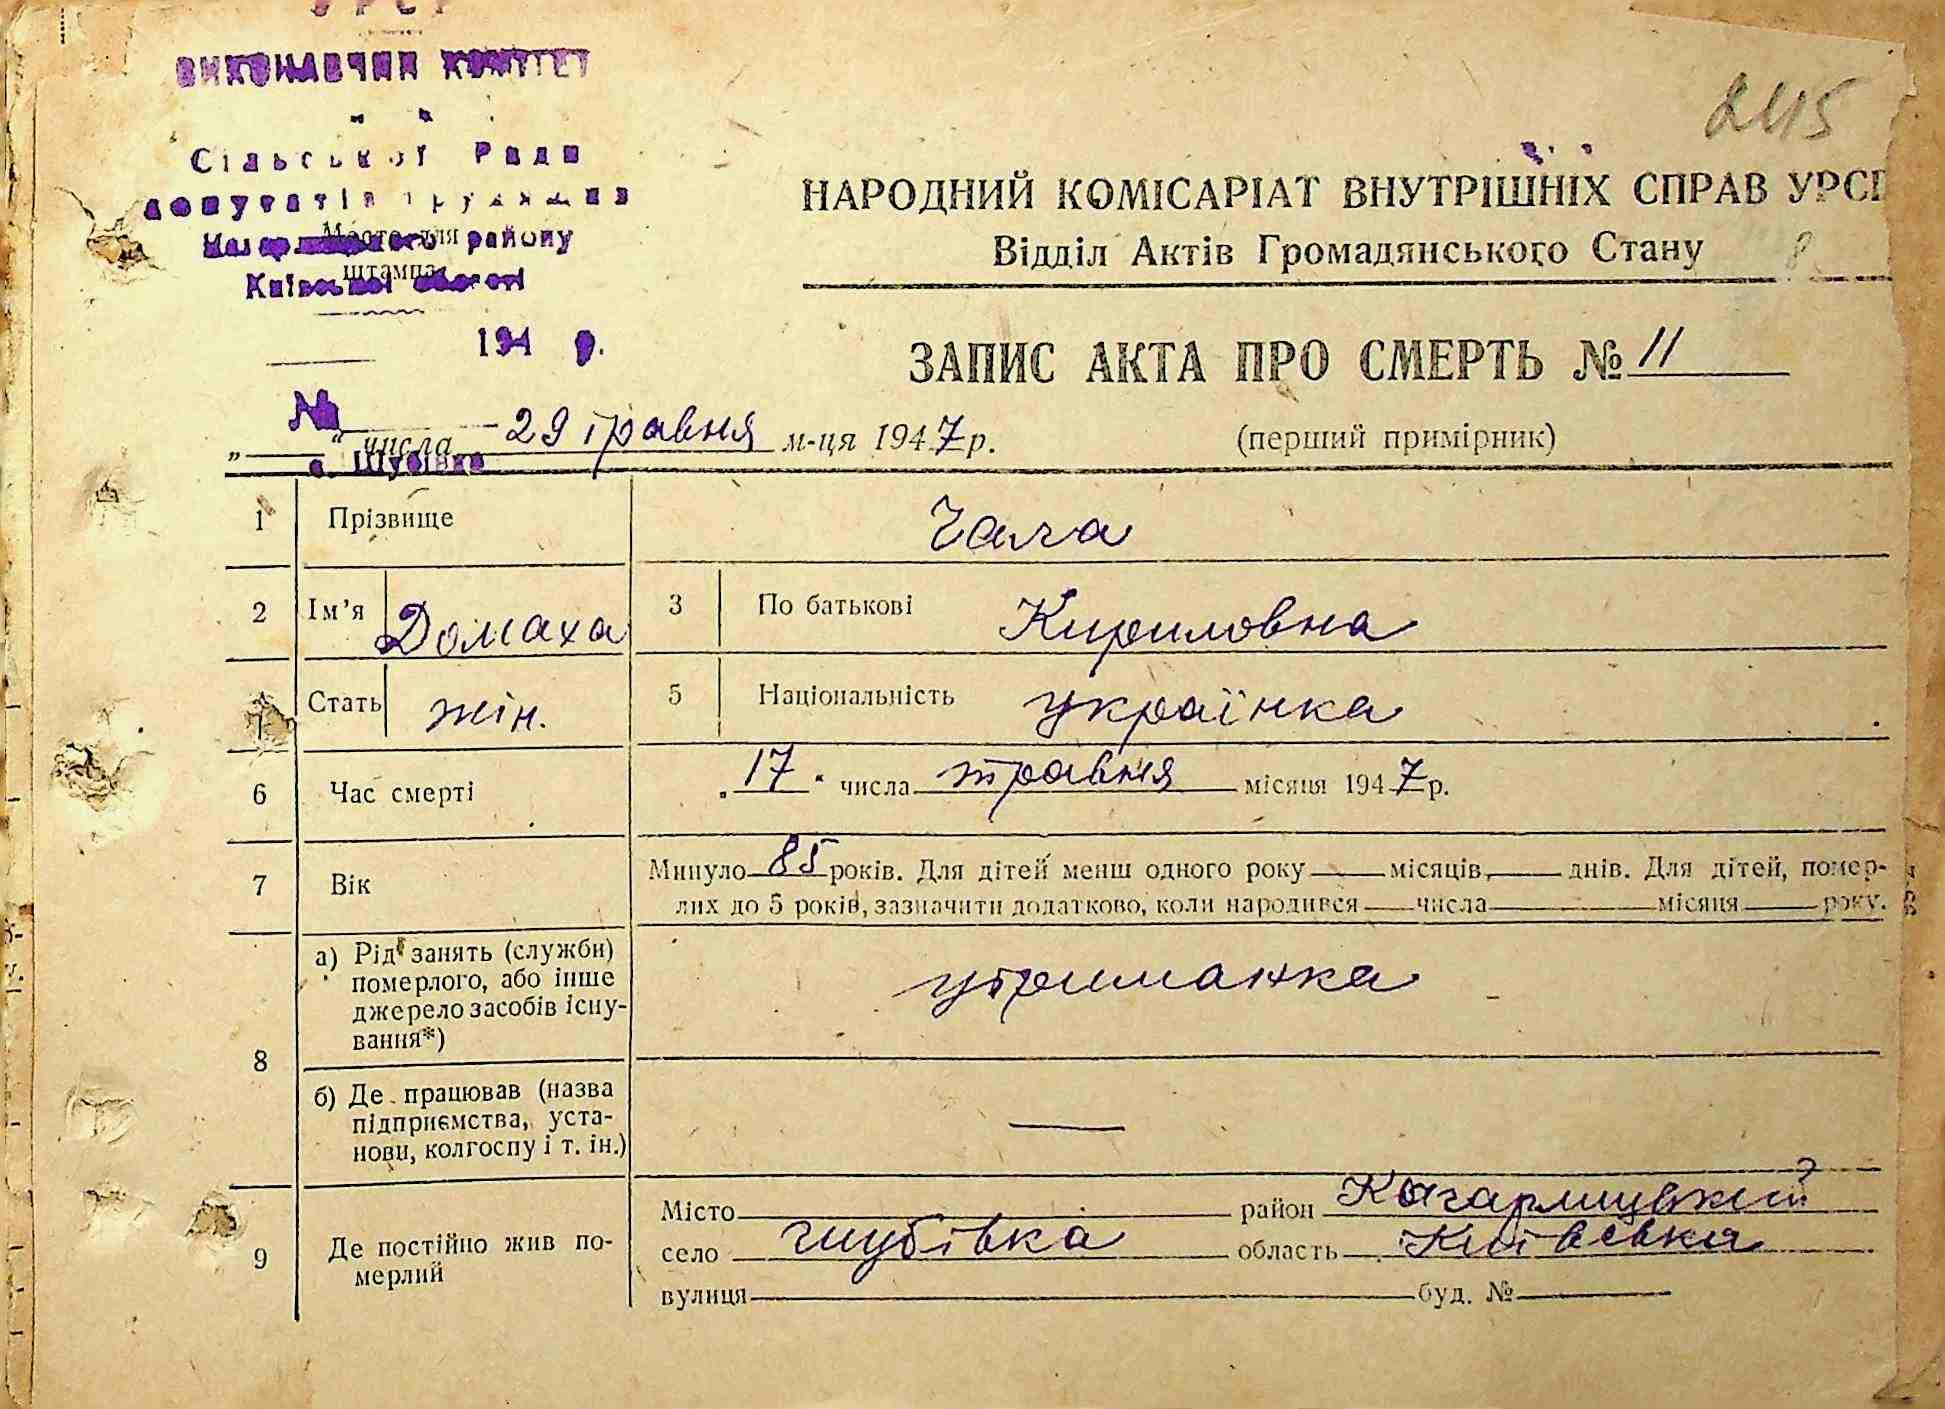 УРСР
ВИКОНАВЧИЙ КОМІТЕТ
245
Сільської Ради
депутатів трудящих
НАРОДНИЙ КОМІСАРІАТ ВНУТРІШНІХ СПРАВ УРСР
Місце для
району
Відділ Актів Громадянського Стану
штампа
Київської області
194 р.
ЗАПИС АКТА ПРО СМЕРТЬ № 11
№
„ “ числа 29 травня м-ця 1947 р.
(перший примірник)
с. Шубівка
1 Прізвище Чала
2 Ім'я Домаха 3 По батькові Кириловна
Стать жін. 5 Національність українка
6 Час смерті „17“ числа травня місяця 1947 р.
7 Вік Минуло 85 років. Для дітей менш одного року місяців, днів. Для дітей, помер-
лих до 5 років, зазначити додатково, коли народився числа місяця року.
8 а) Рід занять (служби)
померлого, або інше
джерело засобів існу-
вання*)
утриманка
б) Де працював (назва
підприємства, уста-
нови, колгоспу і т. ін.)
—
9 Де постійно жив по-
мерлий
Місто район Кагарлицький
село Шубівка область Київська
вулиця буд. №